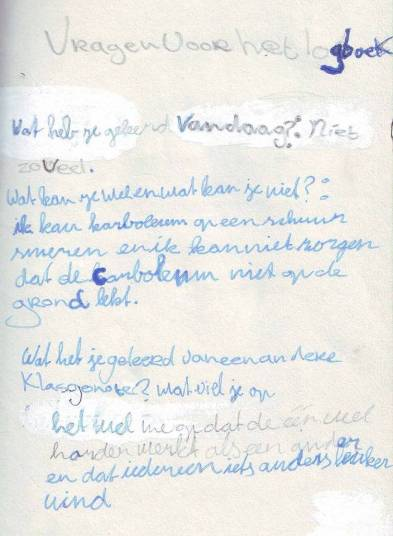 Vragen voor het logboek
Wat heb je geleerd Vandaag?: Niet
zoveel.
Wat kan je wel en wat kan je niet?:
ik kan karboleum op een schuur
smeren en ik kan niet zorgen
dat de Carboleum niet op de
grond lekt.
Wat heb je geleerd van een andere
Klasgenote? wat viel je op
het viel me op dat de één wel
harder werkt als een ander
en dat iedereen iets anders leuker
vind